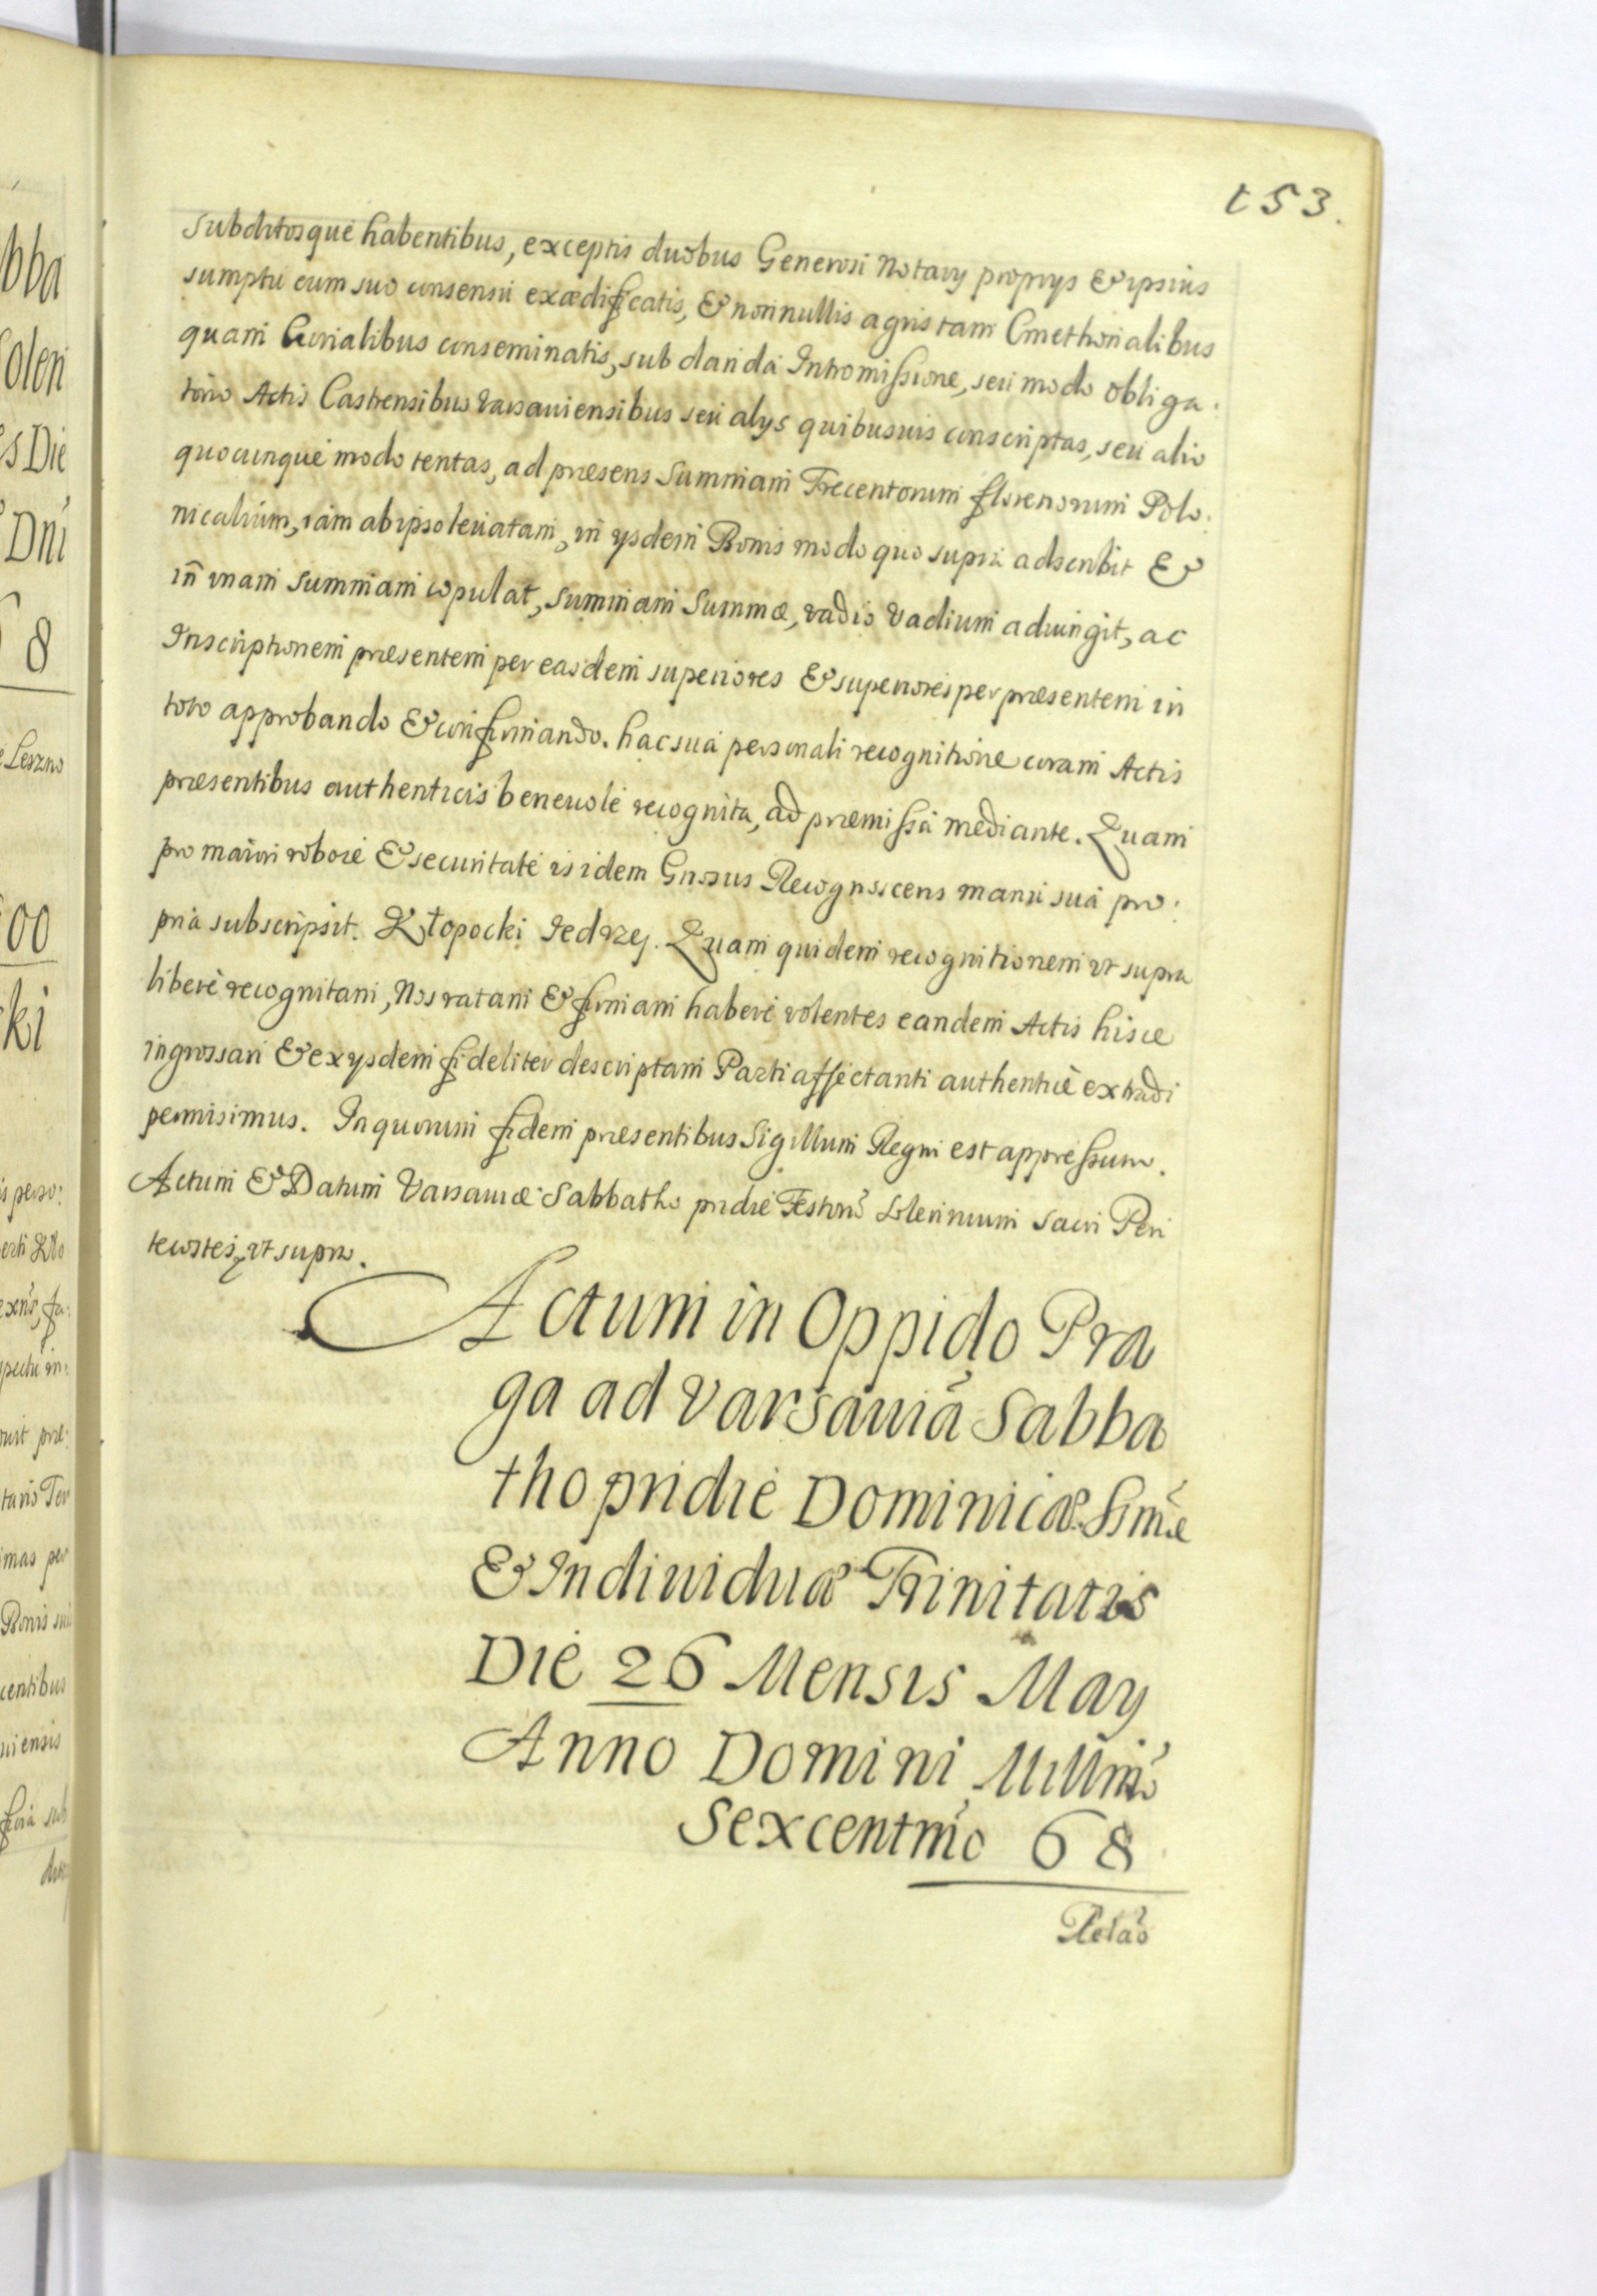 153.
Subditosque habentibus, exceptis duobus Generosi Notary proprys & ipsius
sumptu cum suo consensu exædificatis, & nonnullis agris tam Cmethonalibus
quam Curialibus conseminatis, sub danda Intromissione, seu modo obliga:
torio Actis Castrensibus Varsauiensibus seu alys quibusuis conscriptas, seu alio
quocunque modo tentas, ad præsens Summam Trecentorum florenorum Polo:
nicalium, iam ab ipso leuatam, in ysdem Bonis modo quo supra adscribit &
in vnam summam copulat, summam Summæ, vadio Vadium adiungit, ac
Inscriptionem præsentem per easdem superiores & superiores per præsentem in
toto approbando & confirmando. hac sua personali recognitione coram Actis
præsentibus authenticis beneuole recognita, ad præmissa mediante. Quam
pro maiori robore & securitate is idem Gnosus Recognoscens manu sua pro:
pria subscripsit. Kłopocki Jedrzey. Quam quidem recognitionem vt supra
libere recognitam, Nos ratam & firmam habere volentes eandem Actis hisce
ingrossari & ex ysdem fideliter descriptam Parti affectanti authentice extradi
permisimus. In quorum fidem præsentibus Sigillum Regni est appressum.
Actum & Datum Varsauiæ Sabbatho pridie Festoru Solennium Sacri Pen
tecostes, vt supra.
Actum in Oppido Pra
ga ad Varsauiã Sabba
tho pridie Dominicæ Ssmæ
& Indiuiduæ Trinitatis
Die 26 Mensis May
Anno Domini Millmo
Sexcentmo 68
Relão